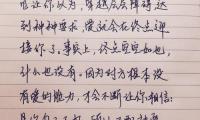 让你以为，穿越层层障碍达
到种种要求，爱就会在终点迎
接你了。事实上，终点空空如也，
什么也没有。因为对方根本没
有爱的能力，才会不断让你相信：